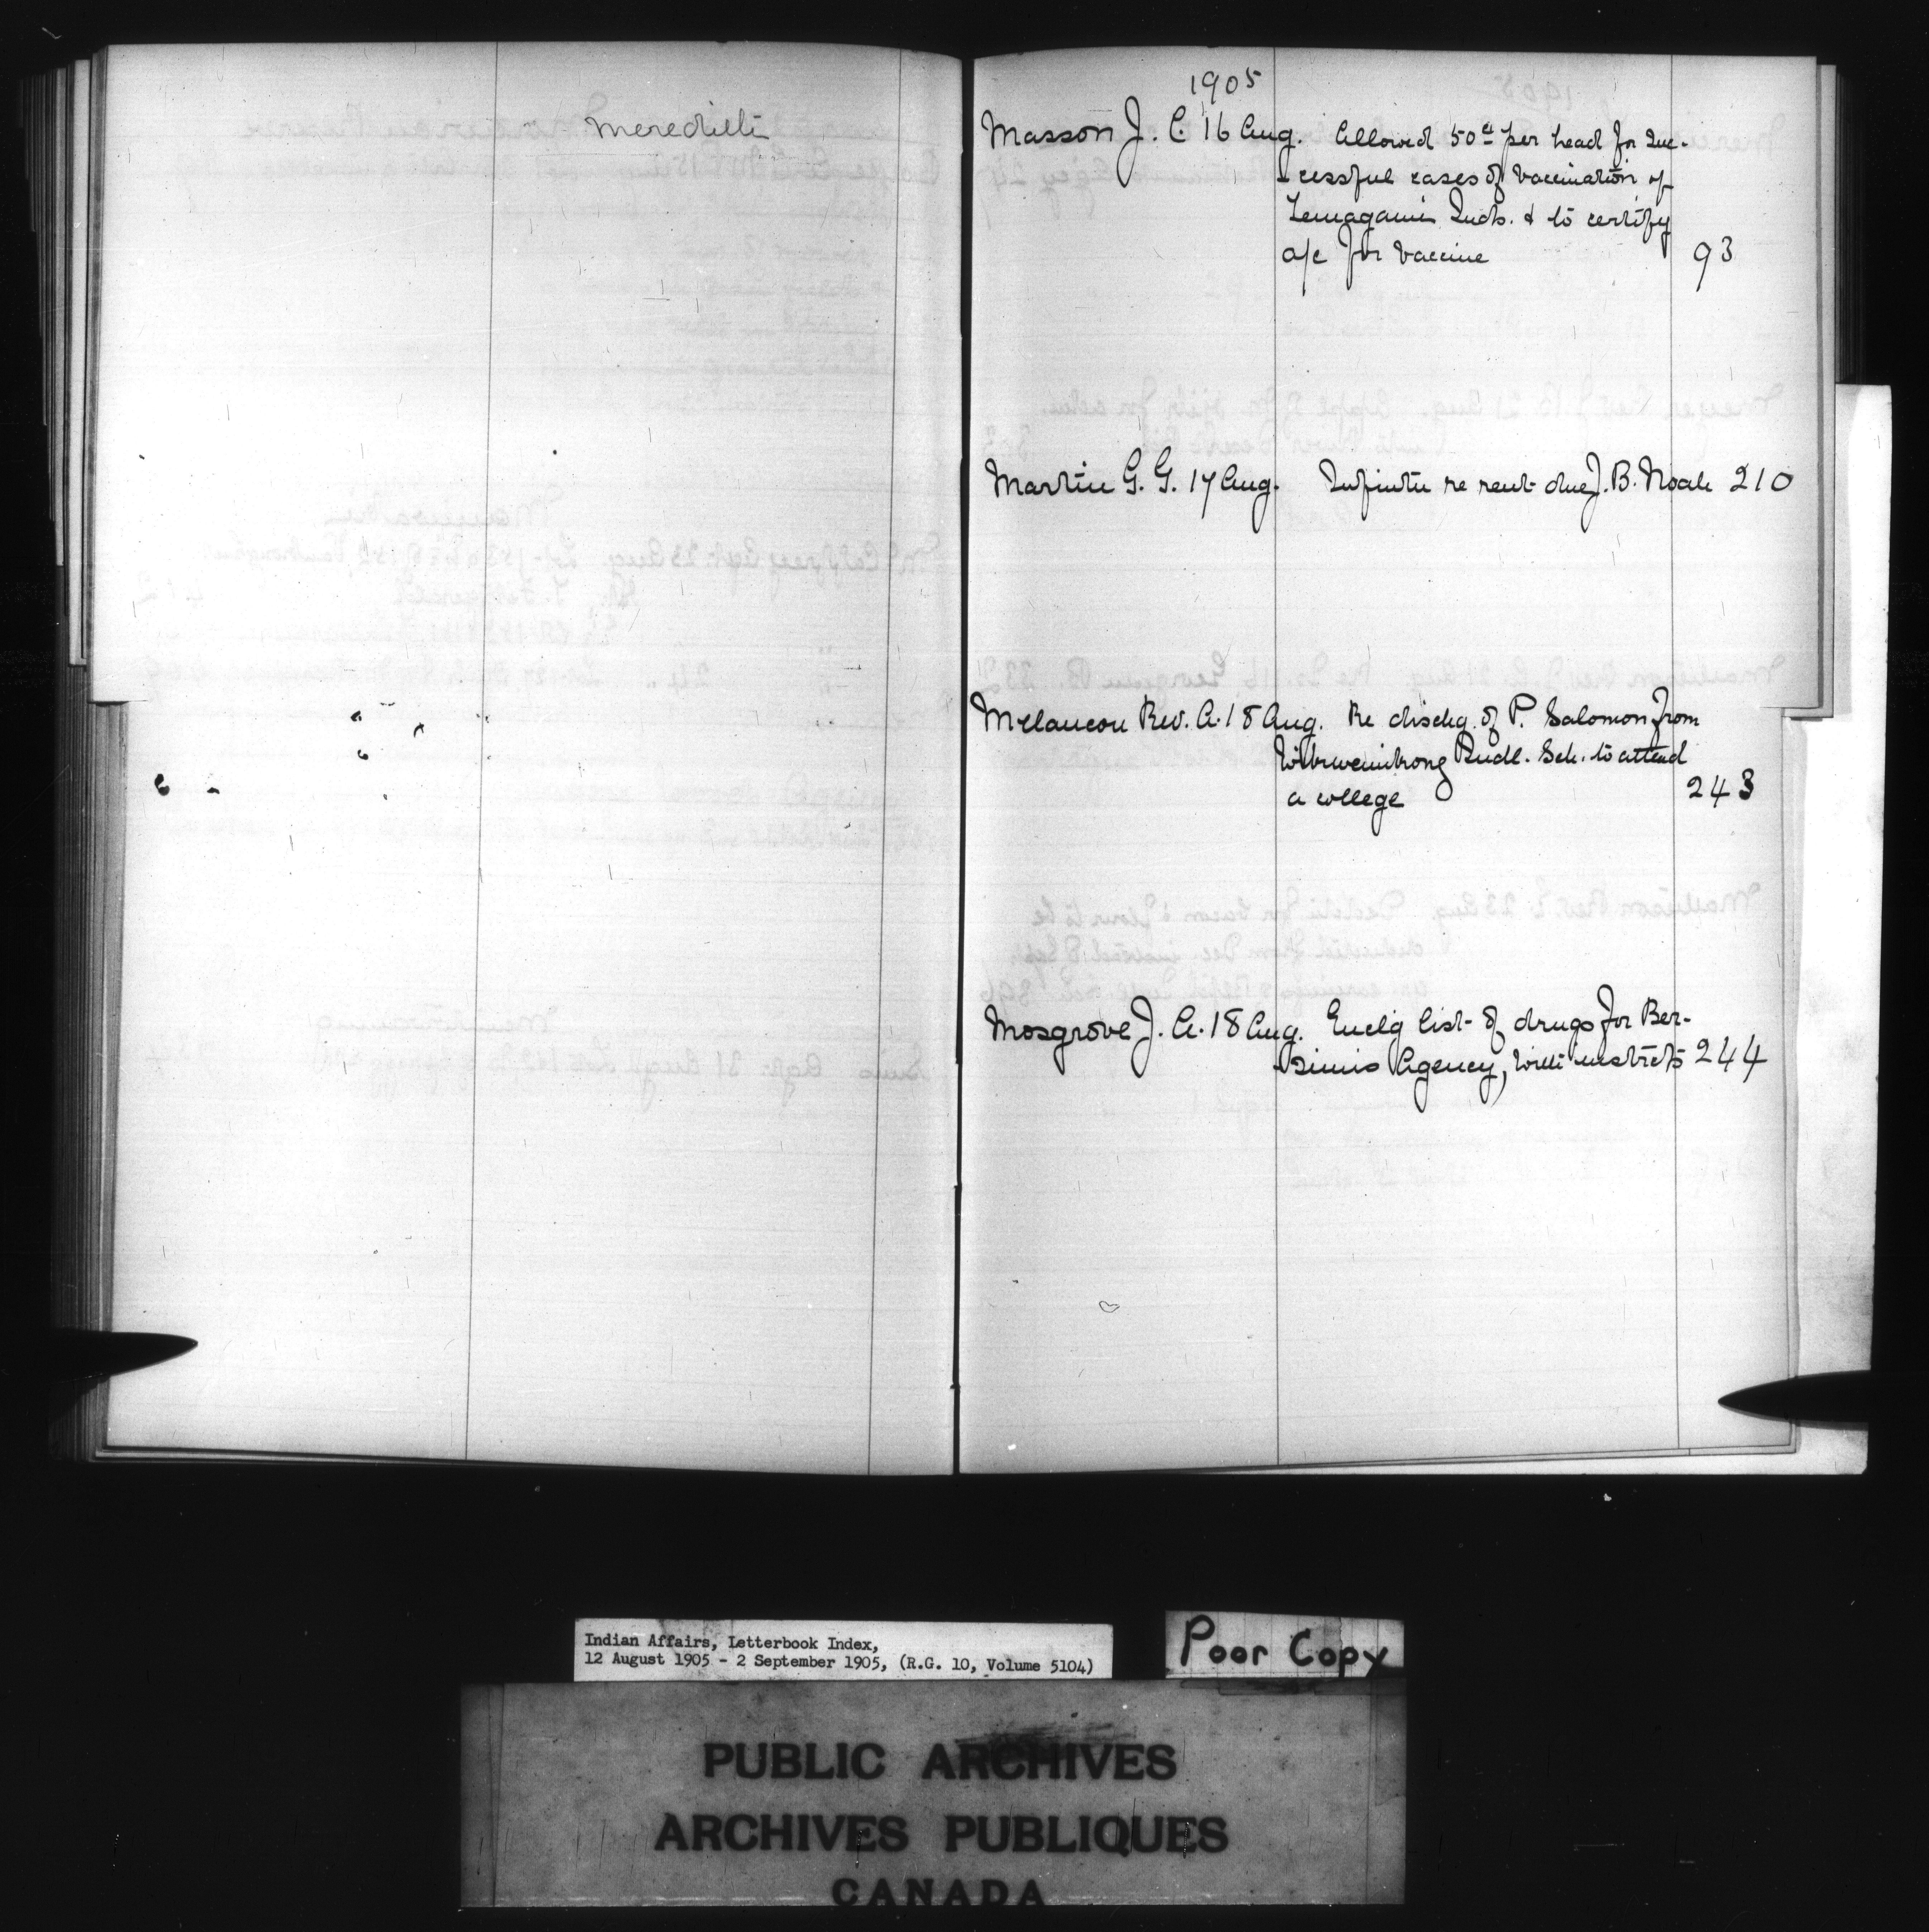 Meredith
1905
Masson J. C. 16 Aug. Allowed 50¢ per head for suc-
cessful cases of vaccination of
Temagami Inds. & to certify
a/c for vaccine 93
Martin G. G. 17 Aug. re rent due J. B. 210
Melancon Rev. A. 18 Aug. Re dischg. of P. Salomon from
Wikwemikong Indl. Sch. to attend
a college 243
Mosgrove J. A. 18 Aug. Enclg list of drugs for Ber-
simis Agency, with instrcts 244
Indian Affairs, Letterbook Index,
12 August 1905 - 2 September 1905, (R.G. 10, Volume 5104)
Poor Copy
PUBLIC ARCHIVES
ARCHIVES PUBLIQUES
CANADA